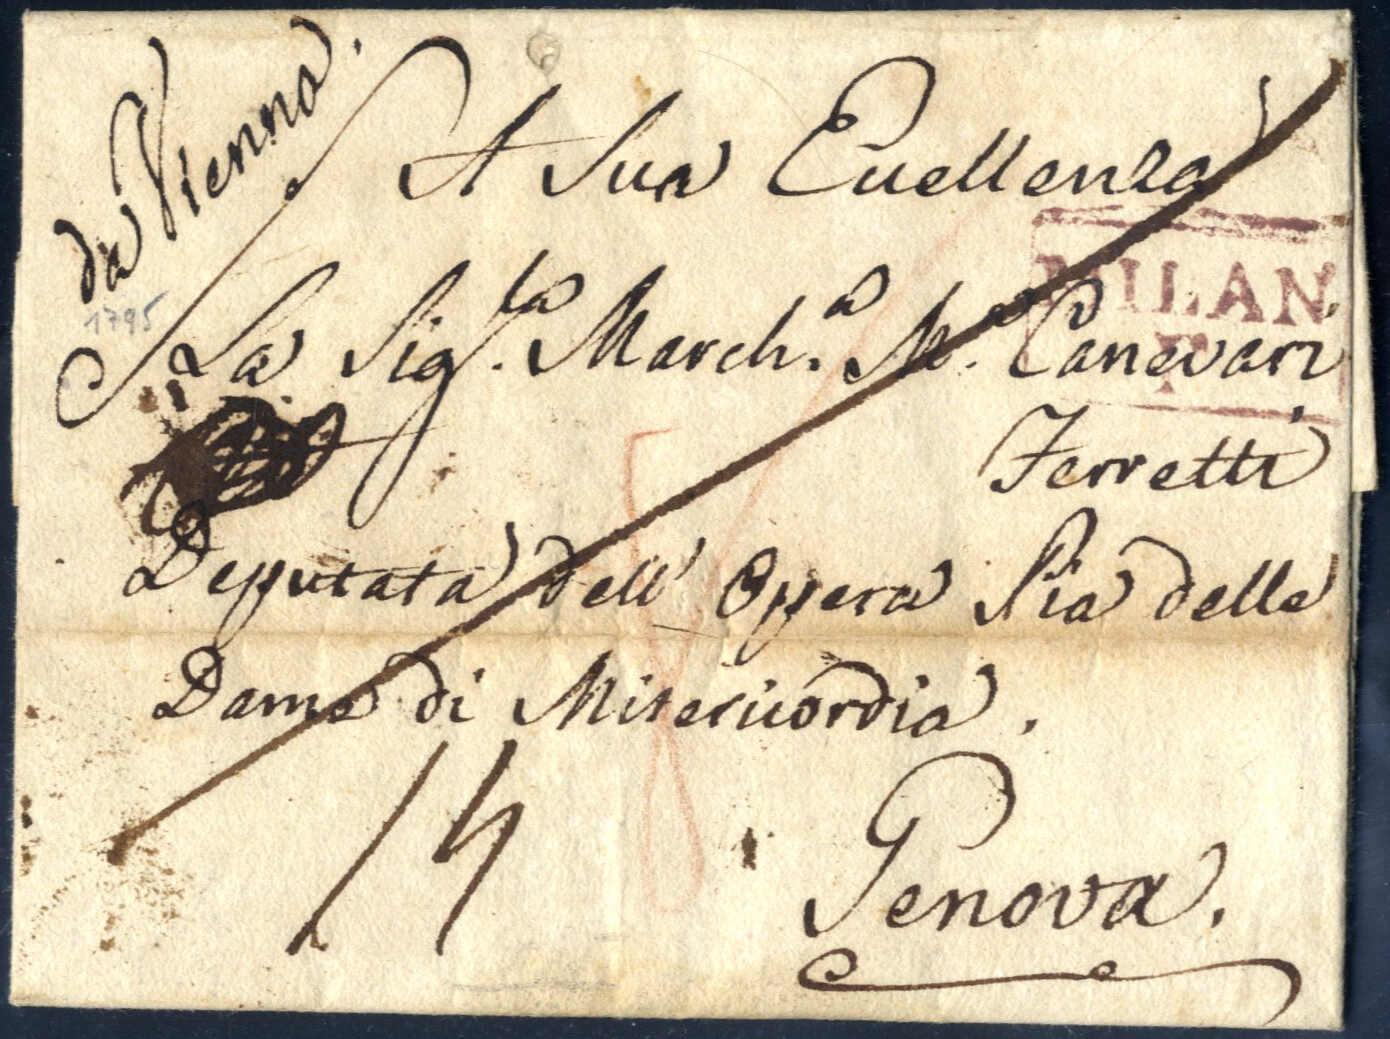 da Vienna.
1795
A Sua Eccellenza
MILAN
La Sig.ra March.a M.a Canevari
Ferretti
Deputata dell' Opera Pia delle
Dame di Misericordia.
14
Genova.